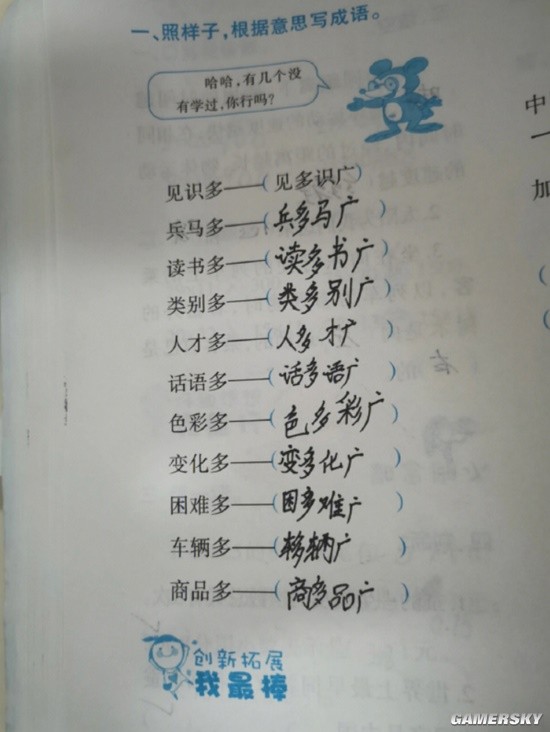 一、照样子,根据意思写成语。
哈哈,有几个没
有学过,你行吗?
见识多——(见多识广)
兵马多——(兵多马广)
读书多——(读多书广)
类别多——(类多别广)
人才多——(人多才广)
话语多——(话多语广)
色彩多——(色多彩广)
变化多——(变多化广)
困难多——(困多难广)
车辆多——(辆广)
商品多——(商多品广)
创新拓展
我最棒
中
一
加
GAMERSKY